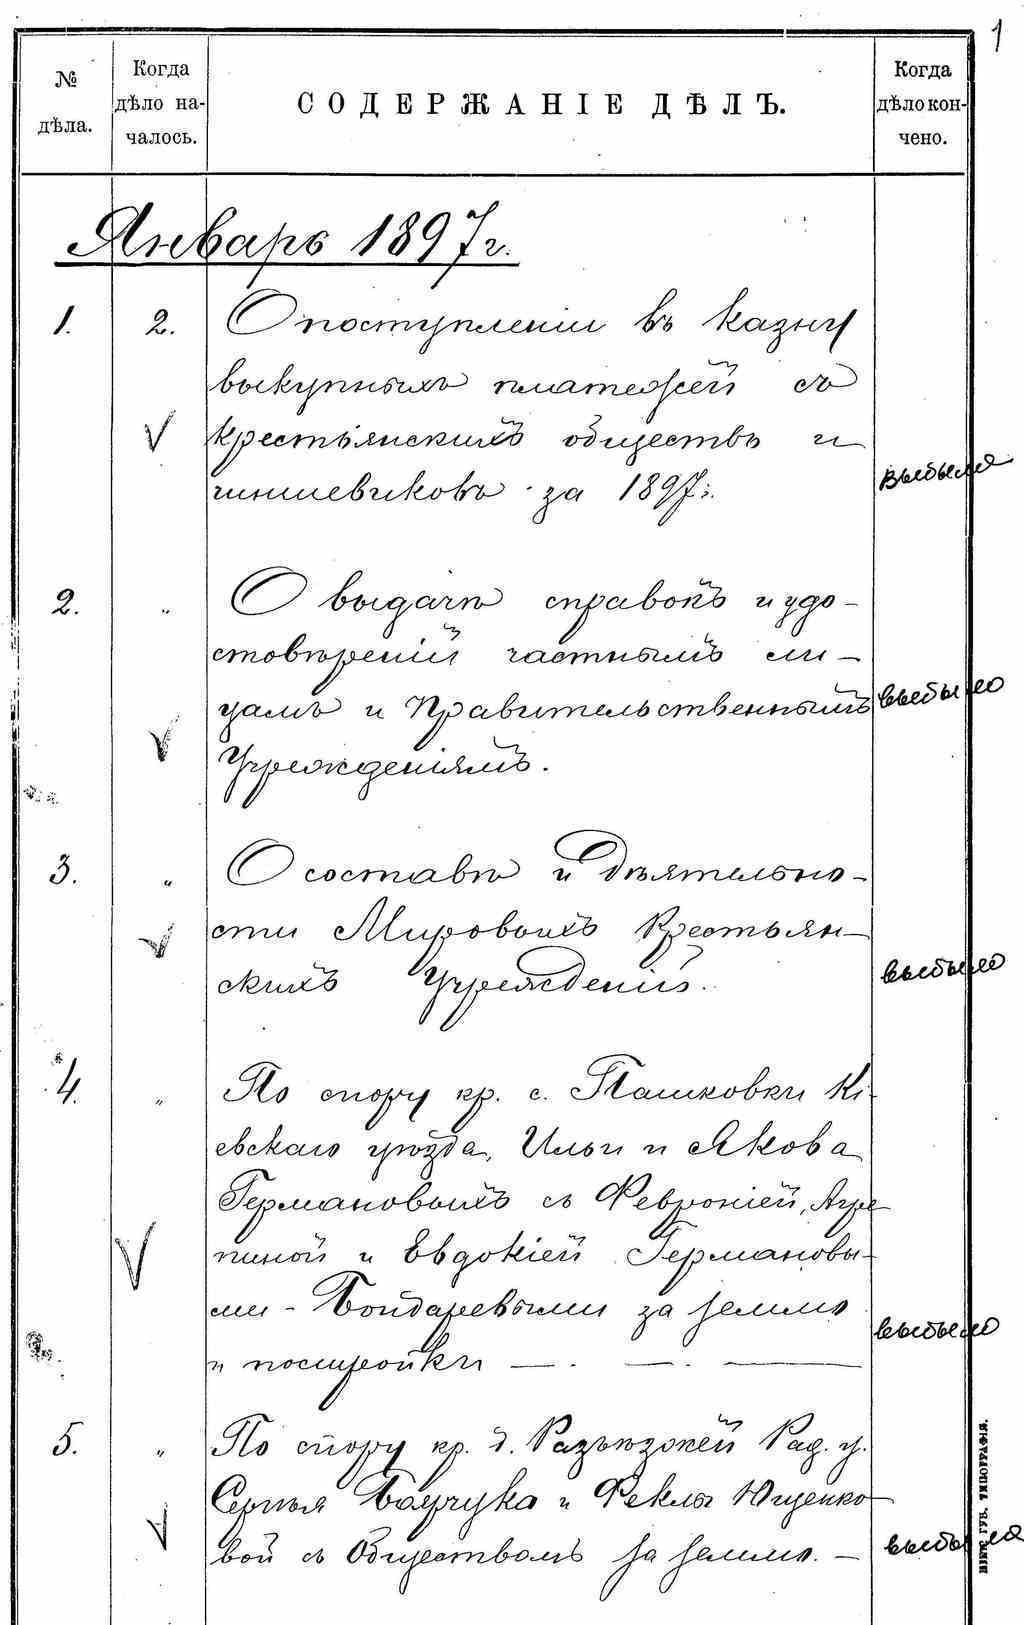 1
№ дѣла.
Когда дѣло началось.
СОДЕРЖАНІЕ ДѢЛЪ.
Когда дѣло кончено.
Январь 1897 г.
1. 2. О поступленіи въ казну
выкупныхъ платежей съ
крестьянскихъ обществъ и
чиншевиковъ за 1897 г.
выбыло
2. " О выдачѣ справокъ и удо-
стовѣреній частнымъ ли-
цамъ и Правительственнымъ
выбыло
Учрежденіямъ.
3. " О составѣ и дѣятельно-
сти Мировыхъ Крестьян-
скихъ Учрежденій.
выбыло
4. " По спору кр. с. Пашковки Кі-
евскаго уѣзда, Ильи и Якова
Германовыхъ съ Февроніей, Агре-
пиной и Евдокіей Германовы-
ми - Бондаревыми за землю
выбыло
и постройки
5. " По спору кр. д. Рад. у.
Сергѣя и Феклы Ющенко-
вой съ Обществомъ за землю. -
выбыло
КІЕВ. ГУБ. ТИПОГРАФІЯ.